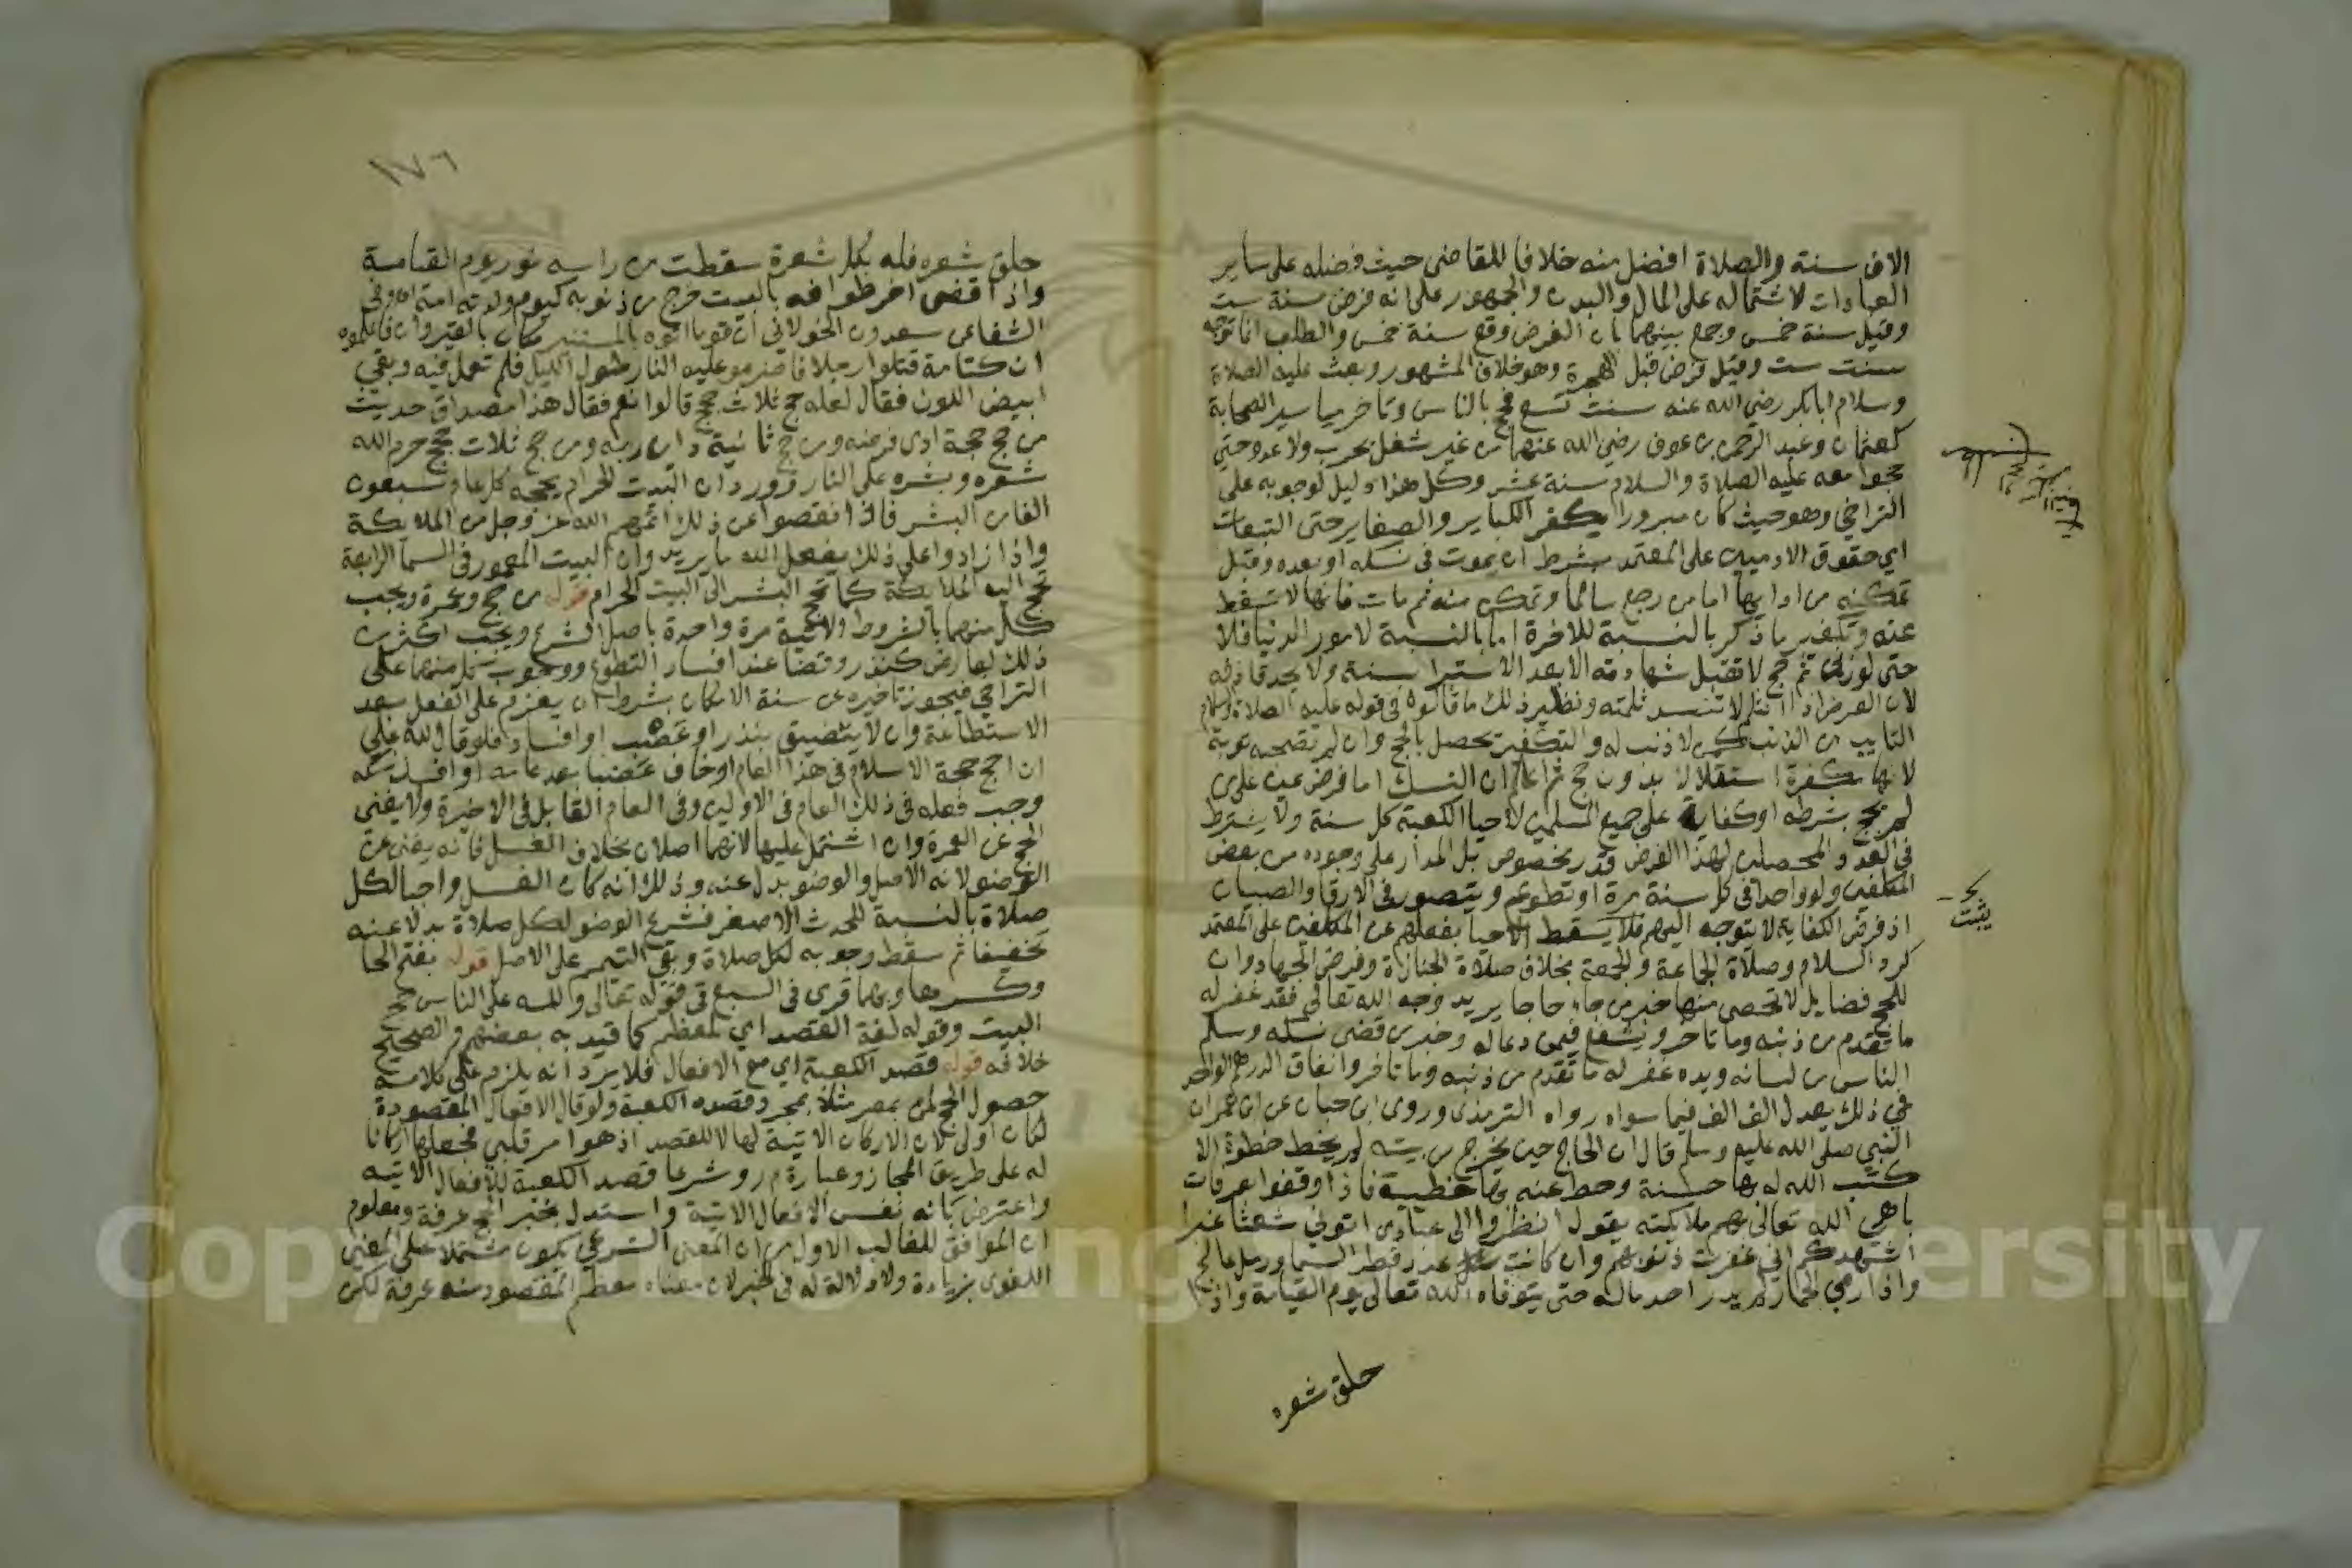 الاف سنة والصلاة افضل منه خلافا للقاضى حيث فضله على ساير
العبادات لاشتماله على المال والبدن والجمهور على انه فرض سنة ست
وقيل سنة خمس وجمع بينهما بان الفرض وقع سنة خمس والطلب انما توجه
سنت ست وقيل فرض قبل الهجرة وهو خلاف المشهور وبعث عليه الصلاة
وسلام ابابكر رضي الله عنه سنت تسع فحج بالناس وتاخر مياسير الصحابة
كعثمان وعبد الرحمن بن عوف رضي الله عنهما من غير شغل بحرب ولا عدو حتي
حجوا معه عليه الصلاة والسلام سنة عشر وكل هذا دليل لوجوبه على
التراخي وهو حيث كان مبرورا يكفر الكباير والصغاير حتى التبعات
اي حقوق الادميين على المعتمد بشرط ان يموت في نسكه او بعده وقبل
تمكنه من ادايها اما من رجع سالما وتمكن منه ثم مات فانها لا تسقط
عنه وتكفير ما ذكر بالنسبة للاخرة اما بالنسبة لامور الدنيا فلا
حتى لو زنى ثم حج لا تقبل شهادته الا بعد الاستبرا سنة ولا يحد قاذفه
لان العرض اذا انثلم لا تنسد ثلمته ونظير ذلك ما قالوه في قوله عليه الصلاة والسلام
التايب من الذنب كمن لا ذنب له والتكفير يحصل بالحج وان لم تصحبه توبة
لانها مكفرة استقلالا بدون حج ثم اعلم ان النسك اما فرض عين على من
لم يحج بشرطه او كفاية على جميع المسلمين لاحيا الكعبة كل سنة ولا يشترط
في العدد المحصلين لهذا الفرض قدر مخصوص بل المدار على وجوده من بعض
المكلفين ولو واحدا في كل سنة مرة او تطوع ويتصور في الارقا والصبيان
اذ فرض الكفاية لا يتوجه اليهم فلا يسقط الاحيا بفعلهم عن المكلفين على المعتمد
كرد السلام وصلاة الجماعة والجمعة بخلاف صلاة الجنازة وفرض الجهاد وان
للحج فضايل لا تحصى منها خبر من جاء حاجا يريد وجه الله تعالى فقد غفر له
ما تقدم من ذنبه وما تاخر ويشفع فيمن دعا له وخبر من قضى نسكه وسلم
الناس من لسانه ويده غفر له ما تقدم من ذنبه وما تاخر وانفاق الدرهم الواحد
في ذلك يعدل الف الف فيما سواه رواه الترمذى وروى ابن حبان عن ابن عمر ان
النبي صلى الله عليه وسلم قال ان الحاج حين يخرج من بيته لم يخط خطوة الا
كتب الله له بها حسنة وحط عنه بها خطيئة فاذا وقفوا بعرفات
باهي الله تعالى بهم ملايكته يقول انظروا الى عبادى اتوني شعثا غبرا
اشهدكم اني غفرت ذنوبهم وان كانت عدد قطر السما ورمل عالج
واذا رمي الجمار لم يدر احد ماله حتى يتوفاه الله تعالى يوم القيامة واذا
حلق شعره
يثبت
١٧٦
حلق شعره فله بكل شعرة سقطت من راسه نور يوم القيامة
واذا قضى اخر طوافه بالبيت خرج من ذنوبه كيوم ولدته امه وفي
الشفا عن سعدون الخولاني ان قوما اتوه بالمنستير مكان بالقيروان فاعلموه
ان كتامة قتلوا رجلا فاضرموا عليه النار طول الليل فلم تعمل فيه وبقي
ابيض اللون فقال لعله حج ثلاث حجج قالوا نعم فقال هذا مصداق حديث
من حج حجة ادى فرضه ومن حج ثانية داين ربه ومن حج ثلاث حجج حرم الله
شعره وبشره على النار وورد ان البيت الحرام يحجه كل عام سبعون
الفا من البشر فاذا نقصوا عن ذلك اتمهم الله عز وجل من الملايكة
واذا زادوا على ذلك يفعل الله ما يريد وان البيت المعمور في السما الرابعة
تحج اليه الملايكة كما تحج البشر الى البيت الحرام قوله من حج وعمرة ويجب
كل منهما بالشروط الاتية مرة واحدة باصل الشرع ويجب اكثر من
ذلك لعارض كنذر وقضا عند افساد التطوع ووجوب كل منهما على
التراخي فيجوز تاخيره عن سنة الامكان بشرط ان يعزم على الفعل بعد
الاستطاعة وان لا يتضيق بنذر او عضب او افساد فلو قال لله علي
ان احج حجة الاسلام في هذا العام او خاف عضبا بعد عامه او افسد نسكه
وجب فعله في ذلك العام في الاوليين وفي العام القابل في الاخيرة ولا يغنى
الحج عن العمرة وان اشتمل عليها لانهما اصلان بخلاف الغسل فانه يغنى عن
الوضو لانه الاصل والوضو بدل عنه وذلك انه كان الغسل واجبا لكل
صلاة بالنسبة للحدث الاصغر فشرع الوضو لكل صلاة بدلا عنه
تخفيفا ثم سقط وجوبه لكل صلاة وبقي التيمم على الاصل قوله بفتح الحا
وكسرها وبهما قرى في السبع في قوله تعالى ولله على الناس حج
البيت وقوله لغة القصد اي لمعظم كما قيد به بعضهم والصحيح
خلافه قوله قصد الكعبة اي مع الافعال فلا يرد انه يلزم على كلامه
حصول الحج لمن بمصر مثلا بمجرد قصده الكعبة ولو قال الافعال المقصودة
لكان اولى لان الاركان الاتية لها لا للقصد اذ هو امر قلبي فجعلها اركانا
له على طريق المجاز وعبارة م ر وشرعا قصد الكعبة للافعال الاتيه
واعترض بانه نفس الافعال الاتية واستدل بخبر الحج عرفة ومعلوم
ان الموافق للغالب الاول من ان المعنى الشرعي يكون مشتملا على المعنى
اللغوى بزيادة ولا دلالة له في الخبر لان معناه معظم المقصود منه عرفة لكن